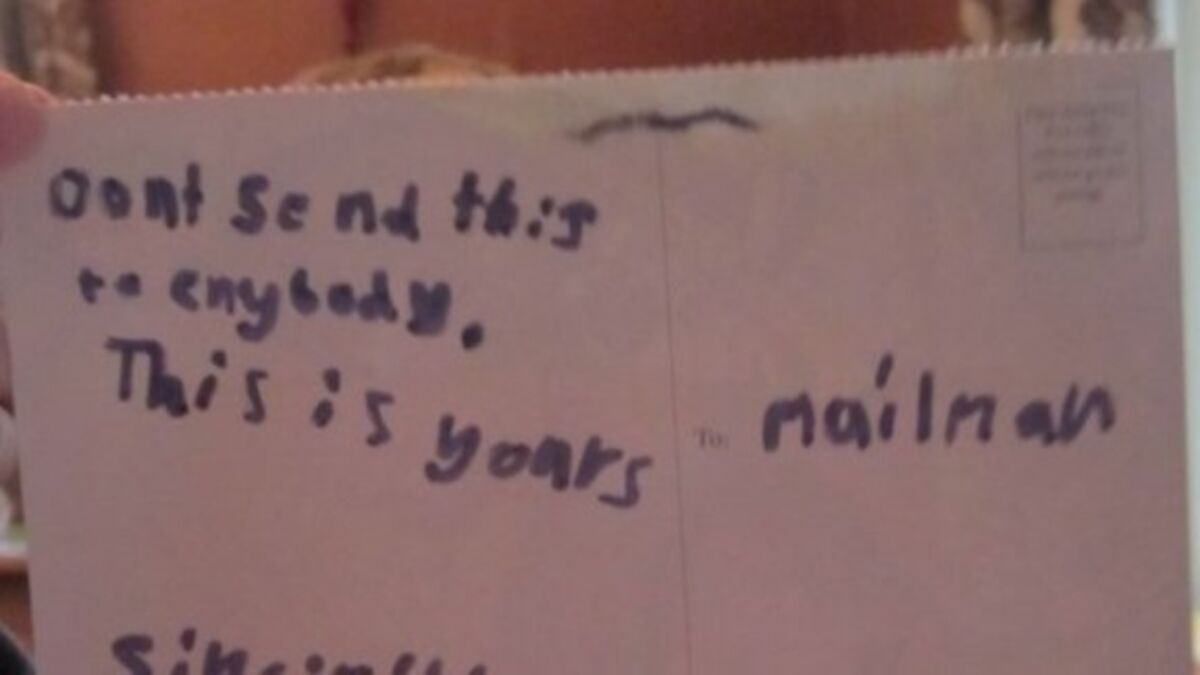 Dont Send this
to enybody.
This is yours
To: mailman